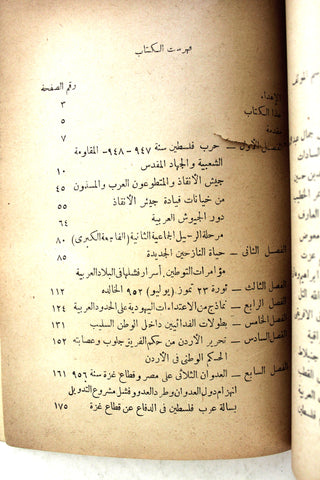 فهرست الكتاب
رقم الصفحة
الإهداء ٣
هذا الكتاب ٥
مقدمة ٧
الفصل الأول — حرب فلسطين سنة ٩٤٧ - ٩٤٨ - المقاومة
الشعبية والجهاد المقدس ١٠
جيش الانقاذ والمتطوعون العرب والمسلمون ٤٥
من خيانات قيادة جيش الانقاذ ٥٥
دور الجيوش العربية ٦٤
مرحلة الرحيل الجماعية الثانية (الفاجعة الكبرى) ٨٠
الفصل الثانى — حياة النازحين الجديدة ٨٥
مؤامرات التوطين، أسرار فشلها فى البلاد العربية
الفصل الثالث — ثورة ٢٣ تموز (يوليو) ٩٥٢ الخالده ١١٢
الفصل الرابع — نماذج من الاعتداءات اليهودية على الحدود العربية ١٢٤
الفصل الخامس — بطولات الفدائيين داخل الوطن السليب ١٣١
الفصل السادس — تحرير الأردن من حكم الفريق جلوب وعصابته ١٥٢
الحكم الوطنى فى الأردن
الفصل السابع — العدوان الثلاثى على مصر وقطاع غزة سنة ٩٥٦ ١٦١
انهزام دول العدوان وطرد العدو وفشل مشروع التدويل
بسالة عرب فلسطين فى الدفاع عن قطاع غزة ١٧٥